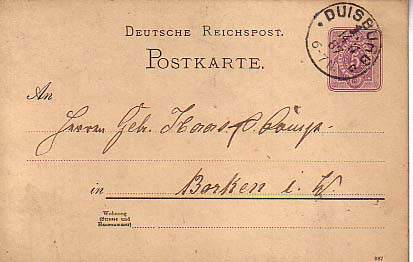 DEUTSCHE REICHSPOST.
POSTKARTE.
DUISBURG
An
Herren Gebr. Haas & Comp.
in Borken i. W
Wohnung
(Strasse und
Hausnummer)
887